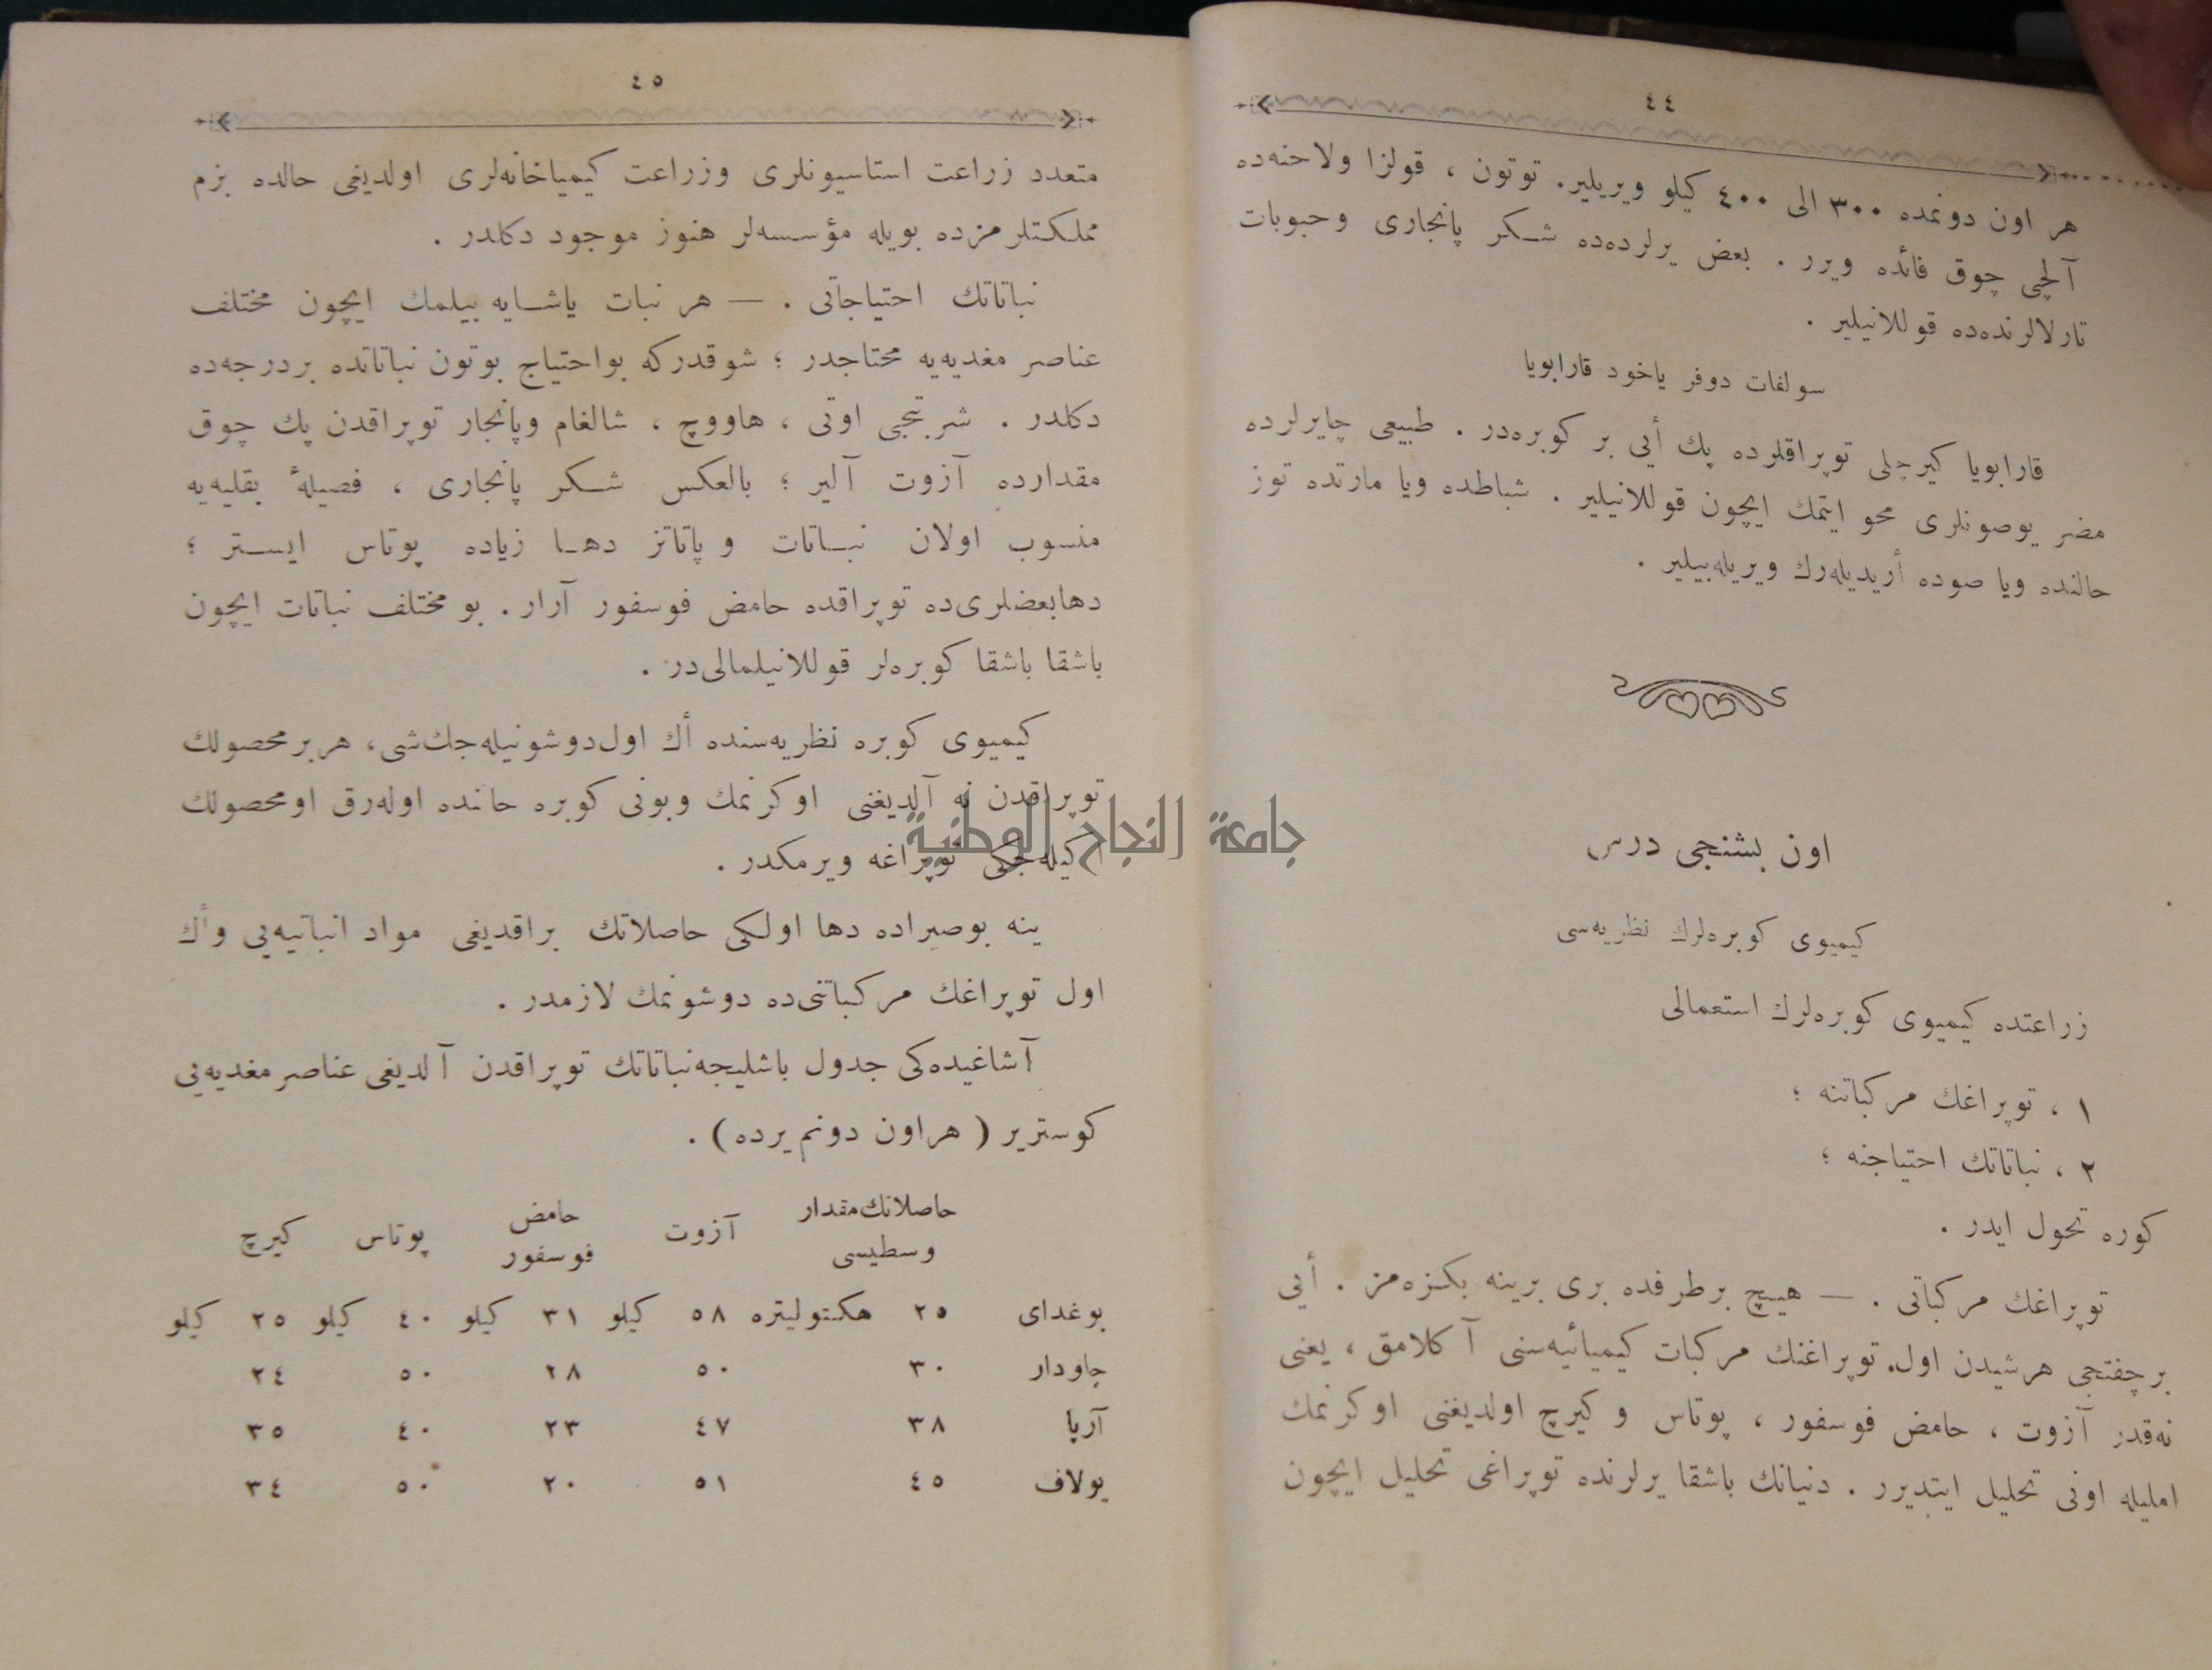 ٤٤
هر اون دونمده ٣٠٠ الی ٤٠٠ كيلو ويريلير. توتون ، قولزا ولاحنه‌ده
آلچی چوق فائده ويرر . بعض يرلرده‌ده شكر پانجاری وحبوبات
تارلالرنده‌ده قوللانيلير .
سولفات دوفر ياخود قارابويا
قارابويا كيرچلی توپراقلرده پك أيی بر كوبره‌در . طبيعی چايرلرده
مضر يوصونلری محو ايتمك ايچون قوللانيلير . شباطده ويا مارتده توز
حالنده ويا صوده أريديله‌رك ويريله‌بيلير .
اون بشنجی درس
كيميوی كوبره‌لرك نظريه‌سی
زراعتده كيميوی كوبره‌لرك استعمالی
١ ، توپراغك مركباتنه ؛
٢ ، نباتاتك احتياجنه ؛
كوره تحول ايدر .
توپراغك مركباتی . — هيچ برطرفده بری برينه بكزه‌مز . أيی
برچفتجی هرشيدن اول. توپراغنك مركبات كيميائيه‌سنی آكلامق ، يعنی
نه‌قدر آزوت ، حامض فوسفور ، پوتاس و كيرچ اولديغنی اوكرنمك
امليله اونی تحليل ايتديرر . دنيانك باشقا يرلرنده توپراغی تحليل ايچون
٤٥
متعدد زراعت استاسيونلری وزراعت كيمياخانه‌لری اولديغی حالده بزم
مملكتلرمزده بويله مؤسسه‌لر هنوز موجود دكلدر .
نباتاتك احتياجاتی . — هر نبات ياشايه بيلمك ايچون مختلف
عناصر مغديه‌يه محتاجدر ؛ شوقدركه بواحتياج بوتون نباتاتده بردرجه‌ده
دكلدر . شربتجی اوتی ، هاووچ ، شالغام وپانجار توپراقدن پك چوق
مقدارده آزوت آلير ؛ بالعكس شكر پانجاری ، فصيلهٔ بقليه‌يه
منسوب اولان نباتات و پاتاتز دها زياده پوتاس ايستر ؛
دهابعضلری‌ده توپراقده حامض فوسفور آرار . بو مختلف نباتات ايچون
باشقا باشقا كوبره‌لر قوللانيلمالی‌در .
كيميوی كوبره نظريه‌سنده أك اول‌دوشونيله‌جك‌شی، هربرمحصولك
توپراقدن نه آلديغنی اوكرنمك وبونی كوبره حالنده اوله‌رق اومحصولك
اكيله‌جكی توپراغه ويرمكدر .
جامعة النجاح الوطنية
ينه بوصيراده دها اولكی حاصلاتك براقديغی مواد انباتيه‌يی وأك
اول توپراغك مركباتنی‌ده دوشونمك لازمدر .
آشاغيده‌كی جدول باشليجه‌نباتاتك توپراقدن آلديغی عناصر مغديه‌يی
كوستریر ( هراون دونم يرده ) .
حاصلاتك‌مقدار وسطيسی آزوت حامض فوسفور پوتاس كيرچ
بوغدای ٢٥ هكتوليتره ٥٨ كيلو ٣١ كيلو ٤٠ كيلو ٢٥ كيلو
جاودار ٣٠ ٥٠ ٢٨ ٥٠ ٢٤
آرپا ٣٨ ٤٧ ٢٣ ٤٠ ٣٥
يولاف ٤٥ ٥١ ٢٠ ٥٠ ٣٤